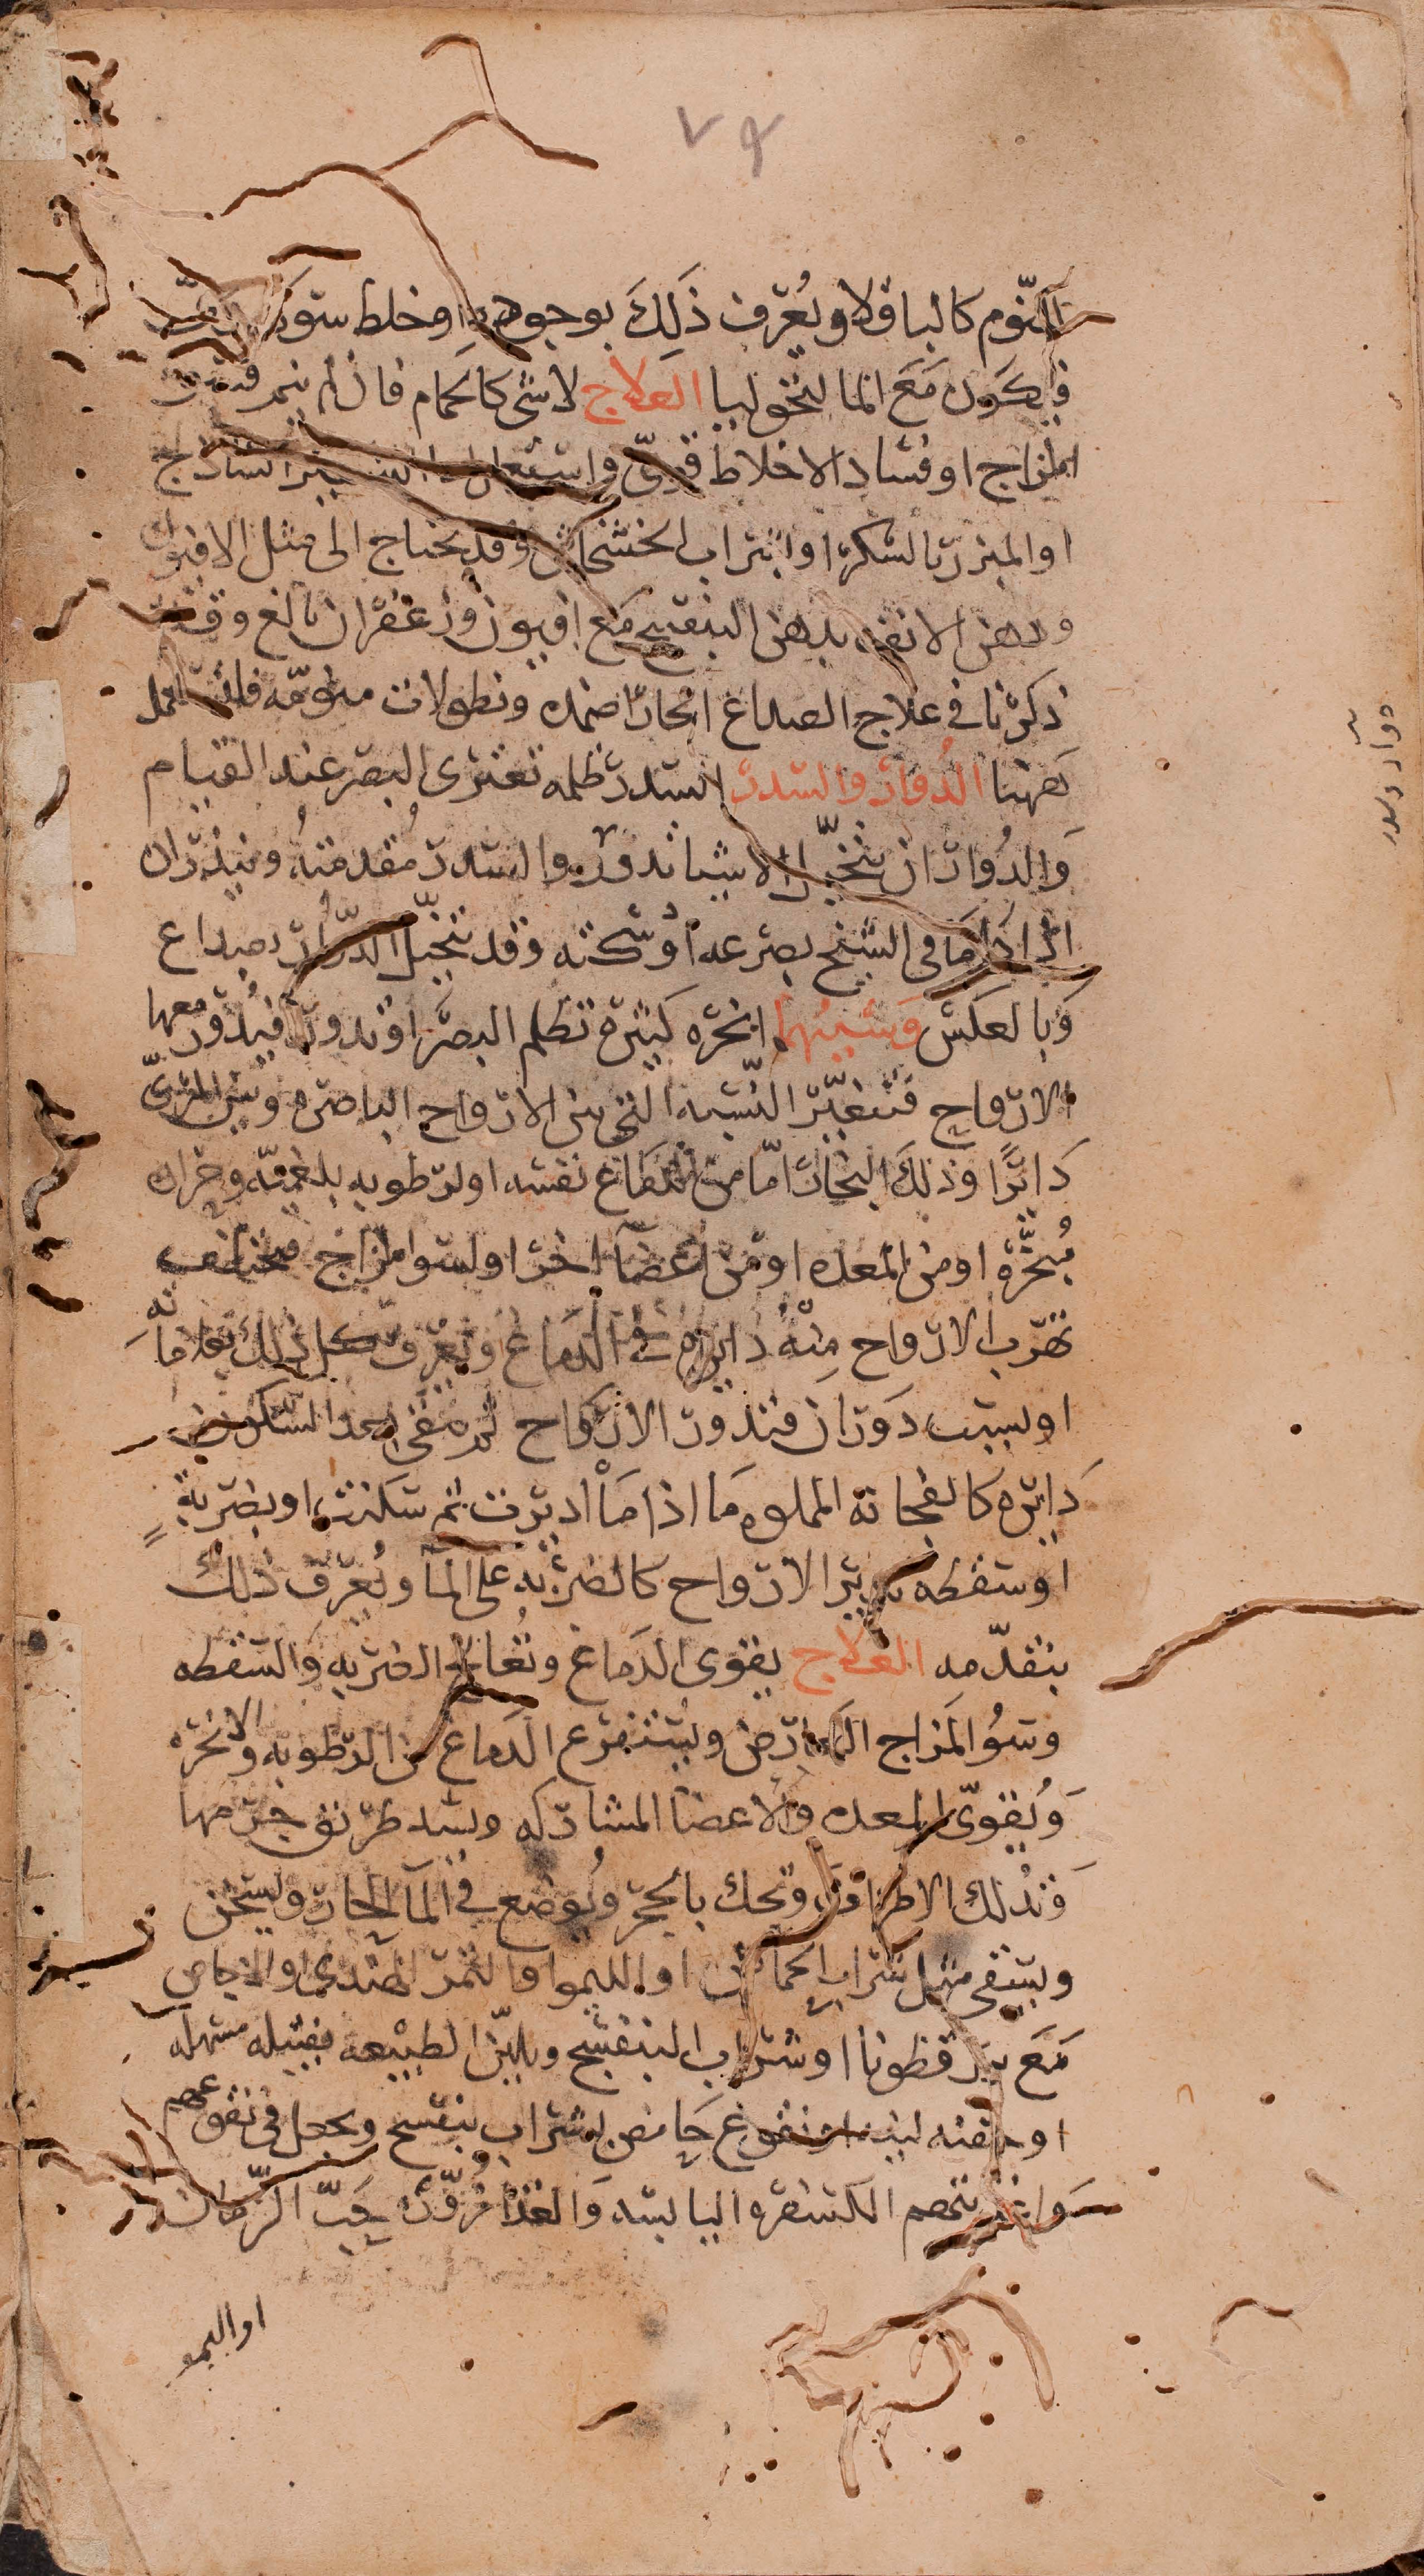 ٧٩
النّوم كالباقلا ويُعرف ذَلِكَ بوجوده او خلط سوداوي
فيكون مَعَ المالنخوليا العلاج لاشى كالحمام فان لم ينم
المزاج او فساد الاخلاط قوى واستعمل ماء الشعير الساذج
او المبزر بالسكر او بشراب الخشخاش وقد يحتاج الى مثل الافيون
ودهن الانف بدهن البنفسج مَع افيون وزعفران بالغ وقد
ذكرنا في علاج الصداع الحار اضمده ونطولات منوّمه فلتستعمل
هَهنا الدُوار والسدر السدر ظلمه تعترى البصر عند القيام
وَالدُوار ان يتخيّل الاشيا تدور والسدر مُقدمتهُ وينذران
اذا داما فى الشيخ بصرعه اوْ سكته وقد ينحل الدّوار بصداع
وَبالعكس وسَببُهما ابخره كثيرة تظلم البصَر او تدور فيُدور معها
الارواح فتتغيّر النّسبه التى بين الارواح الباصره وبين المرئىّ
دَايرًا وذلكَ البخار امّا من الدّماغ نفسه اولرطوبه بلغميّه وحراره
مُبخّره او من المعده او من اعضآ اخر او لسوا مزاج مختلف
تهرب الارواح مِنْهُ دايره فى الدَماغ وتعرف كل ذلك بعلاماته
او لسبب دَوران فتدور الارواح ثم تبقى بعد السكون
دَايره كالفنجانه المملوه مَا اذا مَا اديرت ثم سَكنت او بضربةٍ
او سقطه تدير الارواح كالضربه على المآ ويُعرف ذلك
بتقدّمه العلاج يقوى الدَماغ وتُعالج الضربه وَالسقطه
وسوُ المزاج العارض ويُستفرغ الدَماغ من الرطوبه والابخره
وَيُقوّى المعده والاعضا المشاركه ويسد طريق جرمها
وَتدْلك الاطراف وتحك بالحجر ويُوضع فى المآ الحار ويسخن
ويسقى مثل شراب الحماض او الليموا والتمر الهندى والاجاص
مَعَ بزرقطونا او شراب البنفسج ويليّن الطبيعه بفتيله مسهله
او حقنه لينه او نقوع حَامض بشراب بنفسج ويجعل فى نقوعهم
وَاغذيتهم الكسفره اليابسه وَالغذا مُزوّرة حَبّ الرّمان
او اليمو